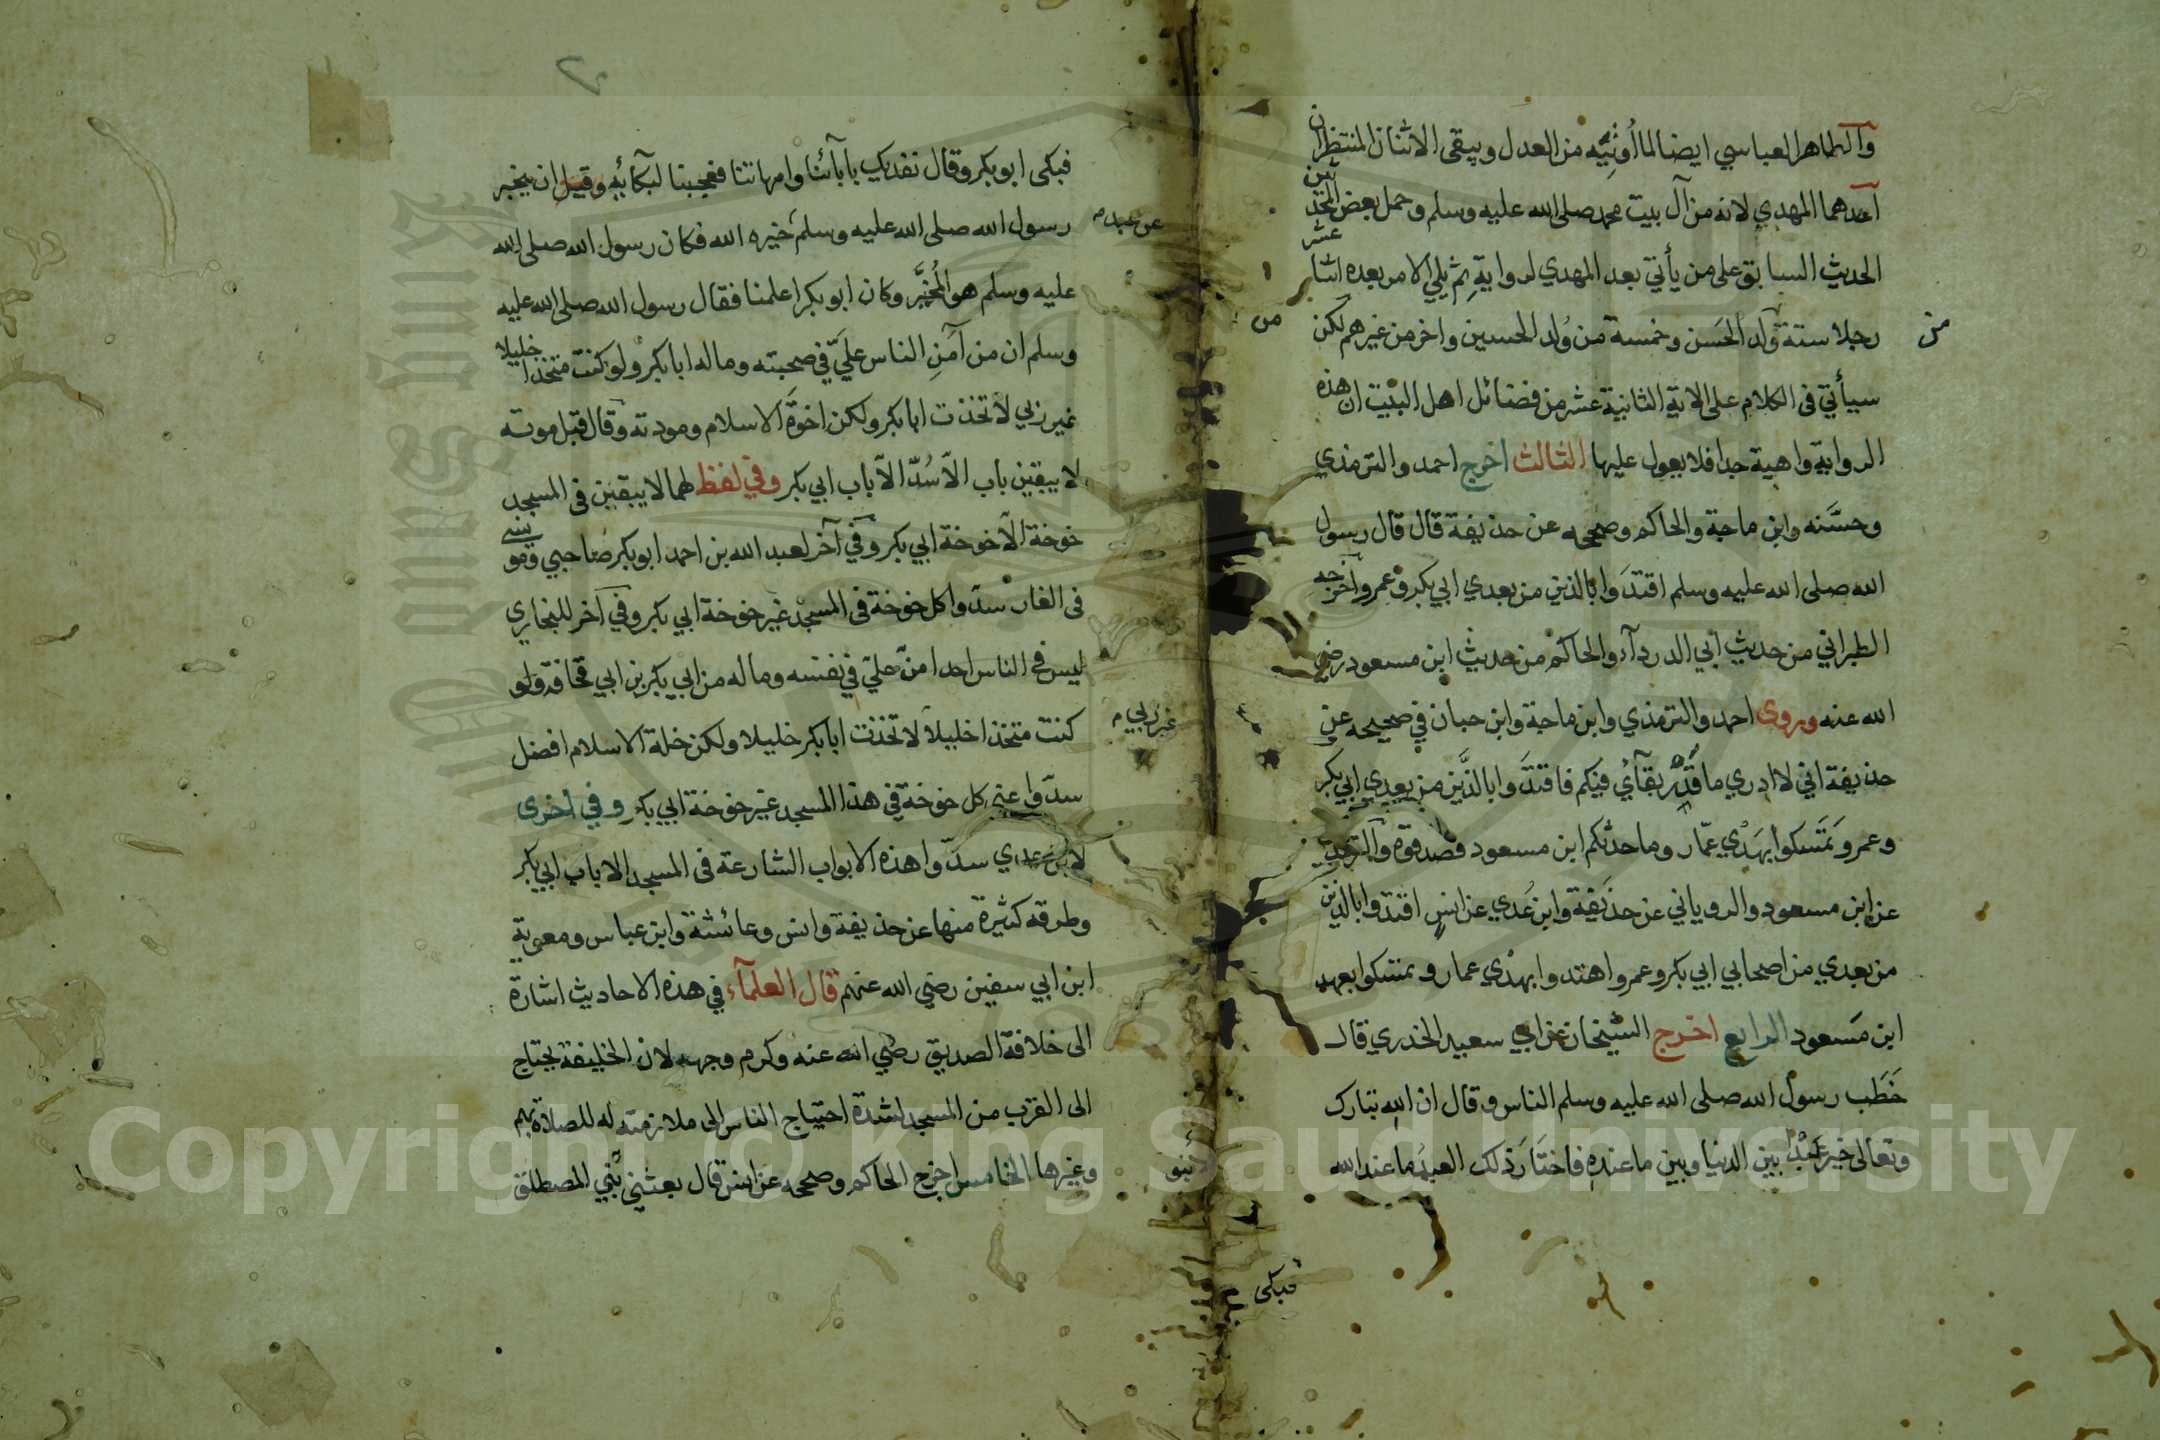 والطاهر العباسي ايضا لما اُوتيَه من العدل ويبقى الاثنان المنتظران
احدهما المهدي لانه من آل بيت محمد صلى الله عليه وسلم وحمل بعض المحدثين
الحديث السابق على من يأتي بعد المهدي لرواية ثم يلي الامر بعده اثنا عشر
رجلا ستة ولد الحَسن وخمسة من وُلد الحسين واخر من غيرهم لكن
من
من
سيأتي في الكلام على الاية الثانية عشر من فضائل اهل البيت ان هذه
الرواية واهية جدا فلا يعول عليها الثالث اخرج احمد والترمذي
وحسَّنه وابن ماجة والحاكم وصححه عن حذيفة قال قال رسول
الله صلى الله عليه وسلم اقتدَوا بالذين من بعدي ابي بكر وعمر واخرجه
الطبراني من حديث ابي الدردآء والحاكم من حديث ابن مسعود رضي
الله عنه وروى احمد والترمذي وابن ماجة وابن حبان في صحيحه عن
حذيفة اني لا ادري ما قُدِّر بقآئي فيكم فاقتدَوا بالذَين من بعدي ابي بكر
وعمر وتمَسكوا بهَدْي عمّار وما حدثكم ابن مسعود فصدقوه والترمذي
عن ابن مسعود والروياني عن حذيفة وابن عَدي عن انس اقتدوا بالذين
من بعدي من اصحابي ابي بكر وعمر واهتدوا بهدْي عمار وتمسكوا بعهد
ابن مَسعود الرابع اخرج الشيخان عن ابي سعيد الخدري قال
خَطَب رسول الله صلى الله عليه وسلم الناس وقال ان الله تبارك
وتعالى خير عَبْدا بين الدنيا وبين ما عنده فاختَارَ ذلك العبدُ ما عند الله
فبكى
فبكى ابو بكر وقال نفديك بابآئنا وامهاتنا فعجبنا لبكآئه وقيل ان يخبر
رسول الله صلى الله عليه وسلم خيره الله فكان رسول الله صلى الله
عن عبد م
عليه وسلم هو المُخيَّر وكان ابو بكر اعلمنا فقال رسول الله صلى الله عليه
وسلم ان من آمَنِ الناس عليّ في صحبته وماله ابا بكر ولو كنت متخذا خليلا
غير ربي لاتخذت ابا بكر ولكن اخوَّة الاسلام ومودته وقال قبل موته
لا يبقين باب الاّ سُدّ الاّ باب ابي بكر وفي لفظ لهما لا يبقين في المسجد
خوخة الاّ خوخة ابي بكر وفي آخر لعبد الله بن احمد ابو بكر صاحبي ومونسى
في الغار سدّوا كل خوخة في المسجد غير خوخة ابي بكر وفي آخر للبخاري
ليس في الناس احدا امنّ عليّ في نفسه وماله من ابي بكر بن ابي قحافة ولو
كنت متخذا خليلاً لاتخذت ابا بكر خليلا ولكن خلة الاسلام افضل
غير ربي م
سدّوا عني كل خوخة في هذا المسجد غير خوخة ابي بكر وفي اخرى
لابن عدي سدّوا هذه الابواب الشارعة في المسجد الا باب ابي بكر
وطرقه كثيرة منها عن حذيفة وانس وعائشة وابن عباس ومعوية
ابن ابي سفين رضي الله عنهم قال العلمآء في هذه الاحاديث اشارة
الى خلافة الصديق رضي الله عنه وكرم وجهه لان الخليفة يحتاج
الى القرب من المسجد لشدة احتياج الناس الى ملازمته له للصلاة بهم
وغيرها الخامس اخرج الحاكم وصححه عن انس قال بعثني بني المصطلق
Copyright © King Saud University